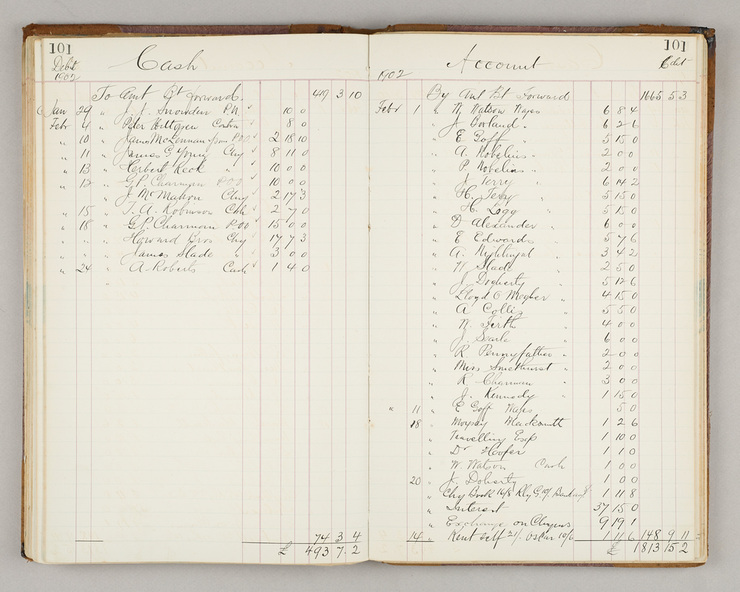 101
Debit
1902
Cash
To Amt Bt forward. 419 3 10
Jan 29 " J. J. Snowden P.N. 10 0
Febr 4 " Peter Hittgren 8 0
" 10 " James McLennan P.O.O 2 18 10
" 11 " James G Young Chq 8 11 0
" 13 " Herbert Keck " 10 0 0
" 12 " G.P. Charman P.O.O 10 0 0
" J McMahon Chq 2 17 3
" 15 " T. A. Robinson Chq 2 7 0
" 18 " G.P. Charman P.O.O 15 0 0
" " " Howard Bros Chq 17 7 3
" " " James Slade " 3 0 0
" 24 " A. Roberts Cash 1 4 0
74 3 4
£ 493 7 2
101
1902
Account
By Amt Bt Forward 1665 5 3
Febr 1 " W. Watson Wages 6 8 4
" J. Borland " 6 2 6
" E Goff " 5 15 0
" A. Nobelius " 2 0 0
" P. Nobelius " 2 0 0
" J. Terry " 6 14 2
" H. Terry " 5 15 0
" H. Legg " 5 15 0
" D Alexander " 6 0 0
" E Edwards " 5 7 6
" A. Nightingal " 3 4 2
" H. Slade " 2 5 0
" J. Dogherty " 5 12 6
" Lloyd C Meyber " 4 15 0
" A Collis " 5 5 0
" N. Firth " 4 0 0
" J Searle " 6 0 0
" R. Pennyfather " 2 0 0
" Miss Smethurst " 2 0 0
" R. Charman " 3 0 0
" J. Kennedy " 1 15 0
" 11 " E Goff Wages 5 0
18 " Blacksmith 1 2 6
" Travelling Exps 1 10 0
" Dr Hooper 1 1 0
" W. Watson Cash 1 0 0
20 " J. Doherty 1 0 0
" Chq Book 1 11 8
" Interest 57 15 0
" Exchange on Cheques 9 19 1
14 " Rent self 21/- Oscar 10/6 1 11 6 148 9 11
£ 1813 15 2